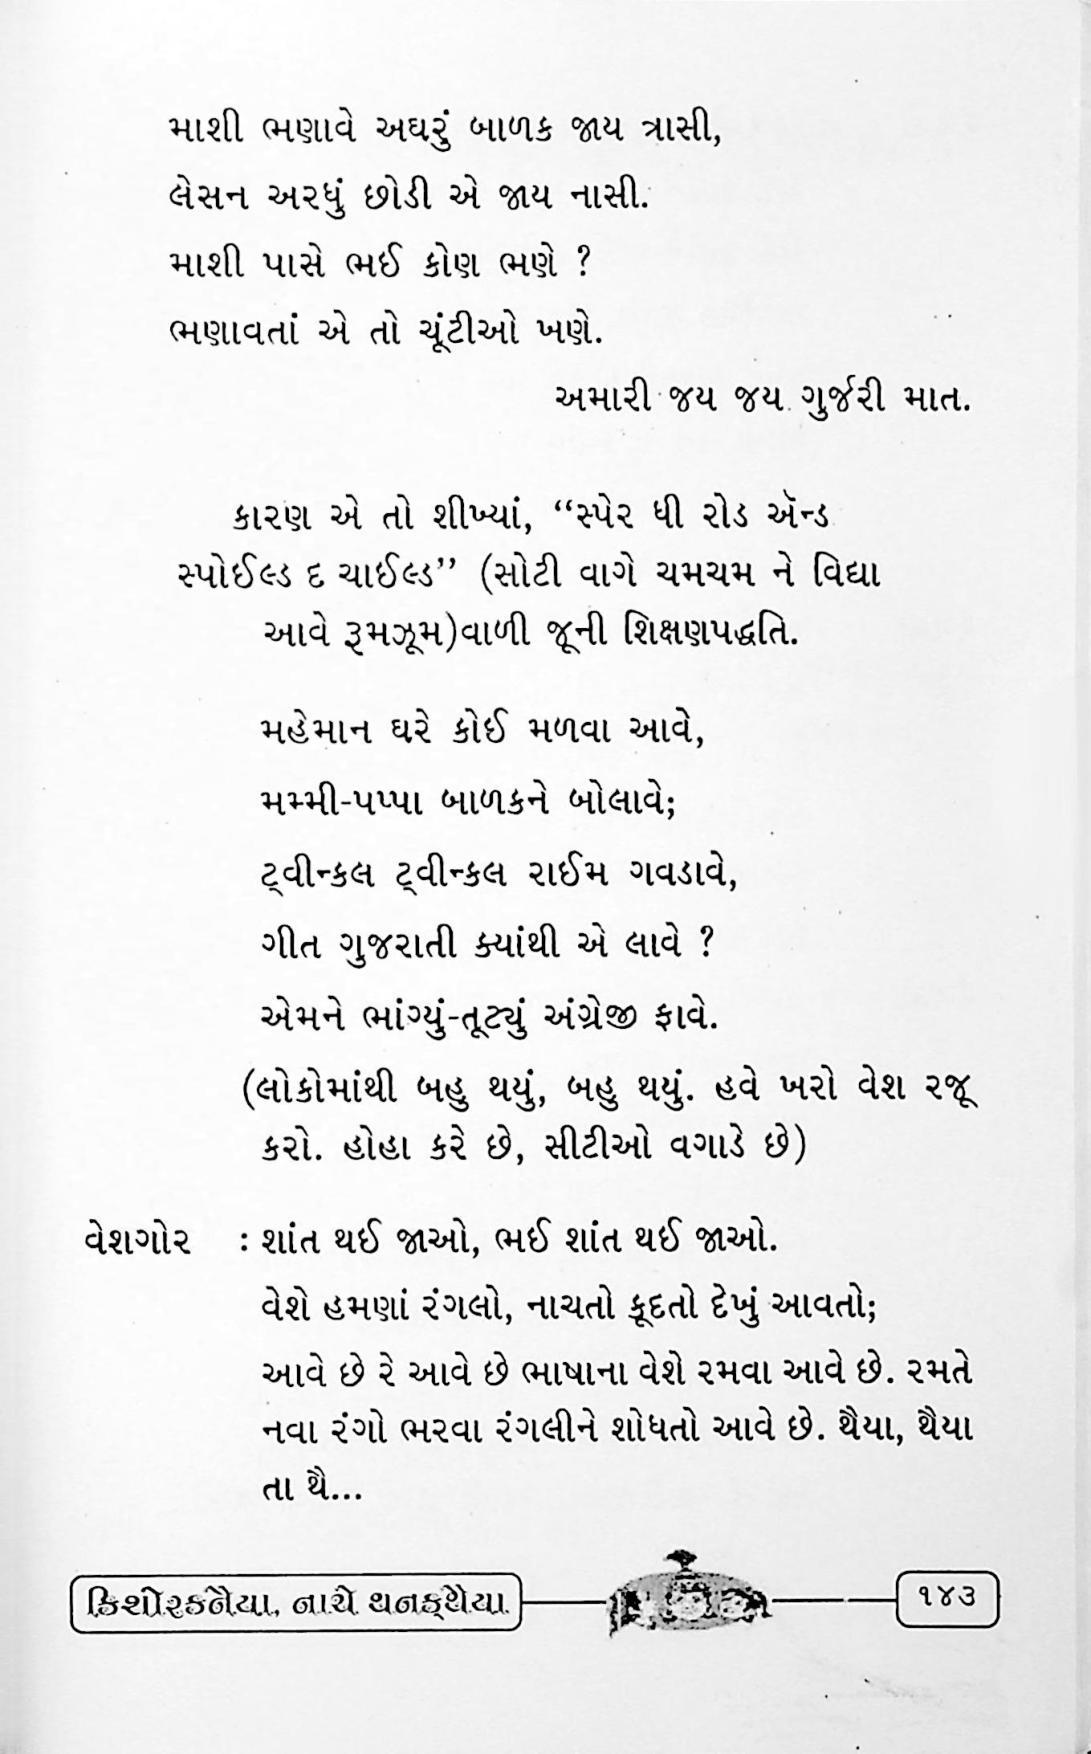 માશી ભણાવે અઘરું બાળક જાય ત્રાસી,
લેસન અરધું છોડી એ જાય નાસી.
માશી પાસે ભઈ કોણ ભણે ?
ભણાવતાં એ તો ચૂંટીઓ ખણે.
અમારી જય જય ગુર્જરી માત.
કારણ એ તો શીખ્યાં, “સ્પેર ધી રોડ ઍન્ડ
સ્પોઈલ્ડ દ ચાઈલ્ડ” (સોટી વાગે ચમચમ ને વિદ્યા
આવે રૂમઝૂમ)વાળી જૂની શિક્ષણપદ્ધતિ.
મહેમાન ઘરે કોઈ મળવા આવે,
મમ્મી-પપ્પા બાળકને બોલાવે;
ટ્વીન્કલ ટ્વીન્કલ રાઈમ ગવડાવે,
ગીત ગુજરાતી ક્યાંથી એ લાવે ?
એમને ભાંગ્યું-તૂટ્યું અંગ્રેજી ફાવે.
(લોકોમાંથી બહુ થયું, બહુ થયું. હવે ખરો વેશ રજૂ
કરો. હોહા કરે છે, સીટીઓ વગાડે છે)
વેશગોર : શાંત થઈ જાઓ, ભઈ શાંત થઈ જાઓ.
વેશે હમણાં રંગલો, નાચતો કૂદતો દેખું આવતો;
આવે છે રે આવે છે ભાષાના વેશે રમવા આવે છે. રમતે
નવા રંગો ભરવા રંગલીને શોધતો આવે છે. થૈયા, થૈયા
તા થૈ...
કિશોરકનૈયા, નાચે થનક્થૈયા ૧૪૩